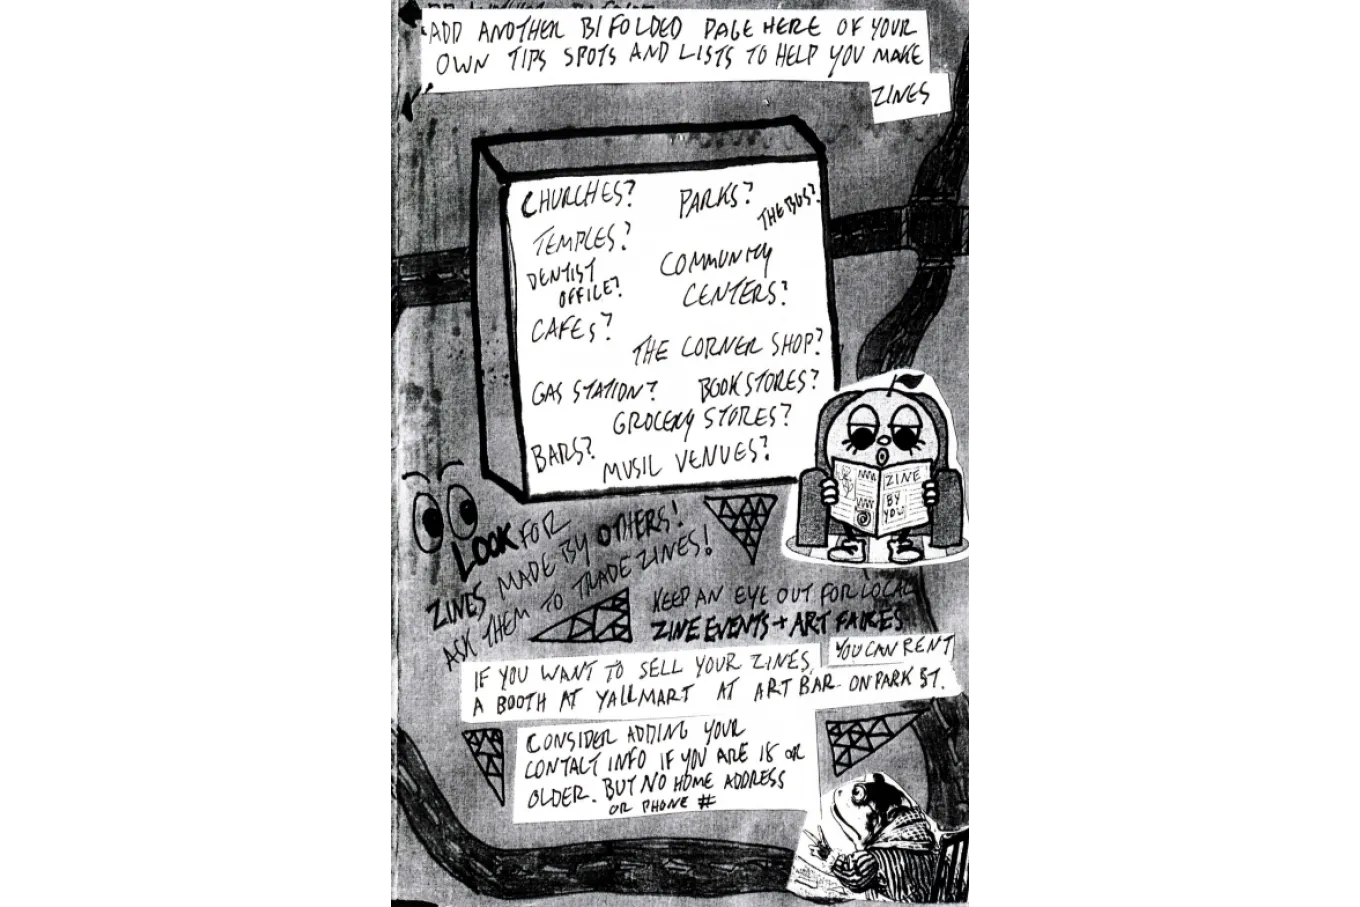 ADD ANOTHER BI FOLDED PAGE HERE OF YOUR
OWN TIPS SPOTS AND LISTS TO HELP YOU MAKE
ZINES
CHURCHES?
PARKS?
THE BUS?
TEMPLES?
COMMUNITY
CENTERS?
DENTIST
OFFICE?
CAFES?
THE CORNER SHOP?
GAS STATION?
BOOKSTORES?
GROCERY STORES?
BARS?
MUSIC VENUES?
ZINE
BY
YOU
LOOK FOR
ZINES MADE BY OTHERS!
ASK THEM TO TRADE ZINES!
KEEP AN EYE OUT FOR LOCAL
ZINE EVENTS + ART FAIRES
IF YOU WANT TO SELL YOUR ZINES, YOU CAN RENT
A BOOTH AT YALLMART AT ART BAR ON PARK ST.
CONSIDER ADDING YOUR
CONTACT INFO IF YOU ARE 18 OR
OLDER. BUT NO HOME ADDRESS
OR PHONE #